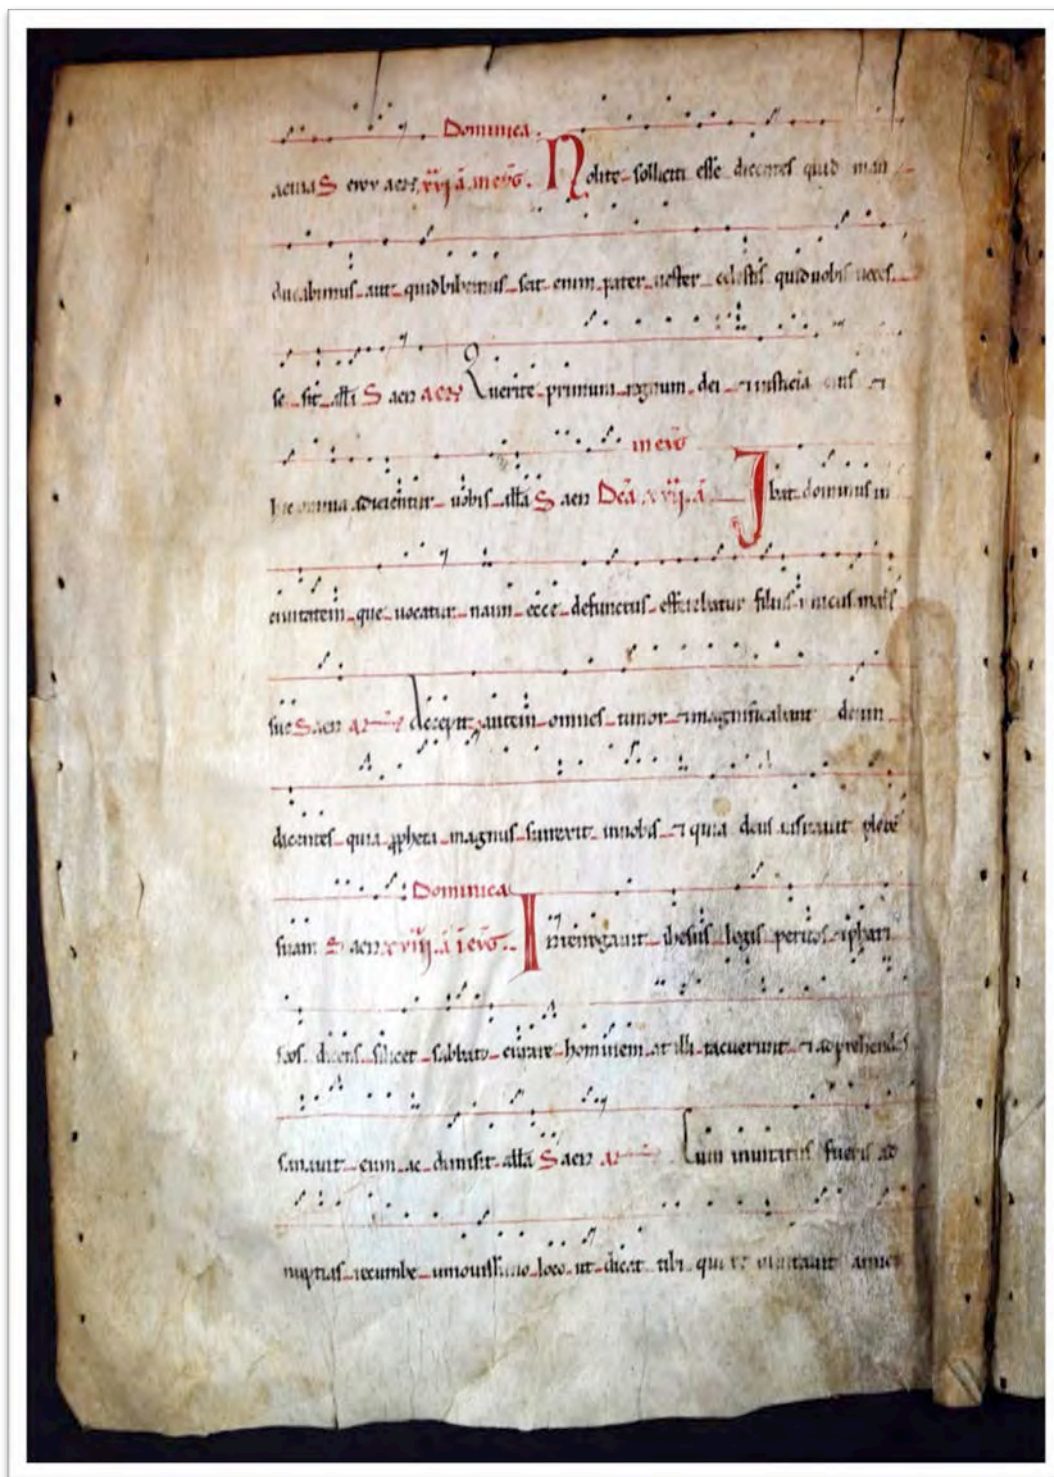 Dominica.
S euouaen xvj ā. in euḡ. Nolite solliciti esse dicentes quid man
ducabimus aut quid bibemus scit enim pater uester celestis quid uobis neces
se sit alła S aen Querite primum regnum dei ⁊ iusticia eius ⁊
in euḡ
hec omnia adicientur uobis alła S aen Dc̄a xvij. ā Ibat dominus in
ciuitatem que uocatur naim ecce defunctus efferebatur filius unicus mat̄s
sue S aen Accepit autem omnes timor ⁊ magnificabant deum
dicentes quia ꝓpheta magnus surrexit in nobis ⁊ quia deus uisitauit plebē
Dominica
suam S aen xviij. ā i euḡ. Interrogauit ihesus legis peritos ⁊ phari
seos dicens si licet sabbato curare hominem at illi tacuerunt ⁊ adprehendēs
sanauit eum ac dimisit alła S aen Cum inuitatus fueris ad
nuptias recumbe in nouissimo loco ut dicat tibi qui te inuitauit amice